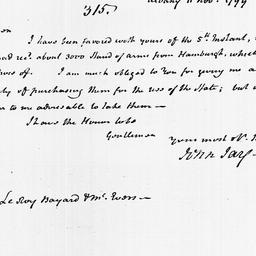 Albany 11 Nov. 1799
315.
I have been favored with yours of the 5th Instant,
rec.d about 3000 Stand of arms from Hamburgh, which
of. I am much obliged to You for giving me a
of purchasing them for the use of the State; but
to me adviseable to take them—
I have the Honor to be
Gentlemen
Your most Ob.
John Jay—
Le Roy Bayard & Mc. Evers—